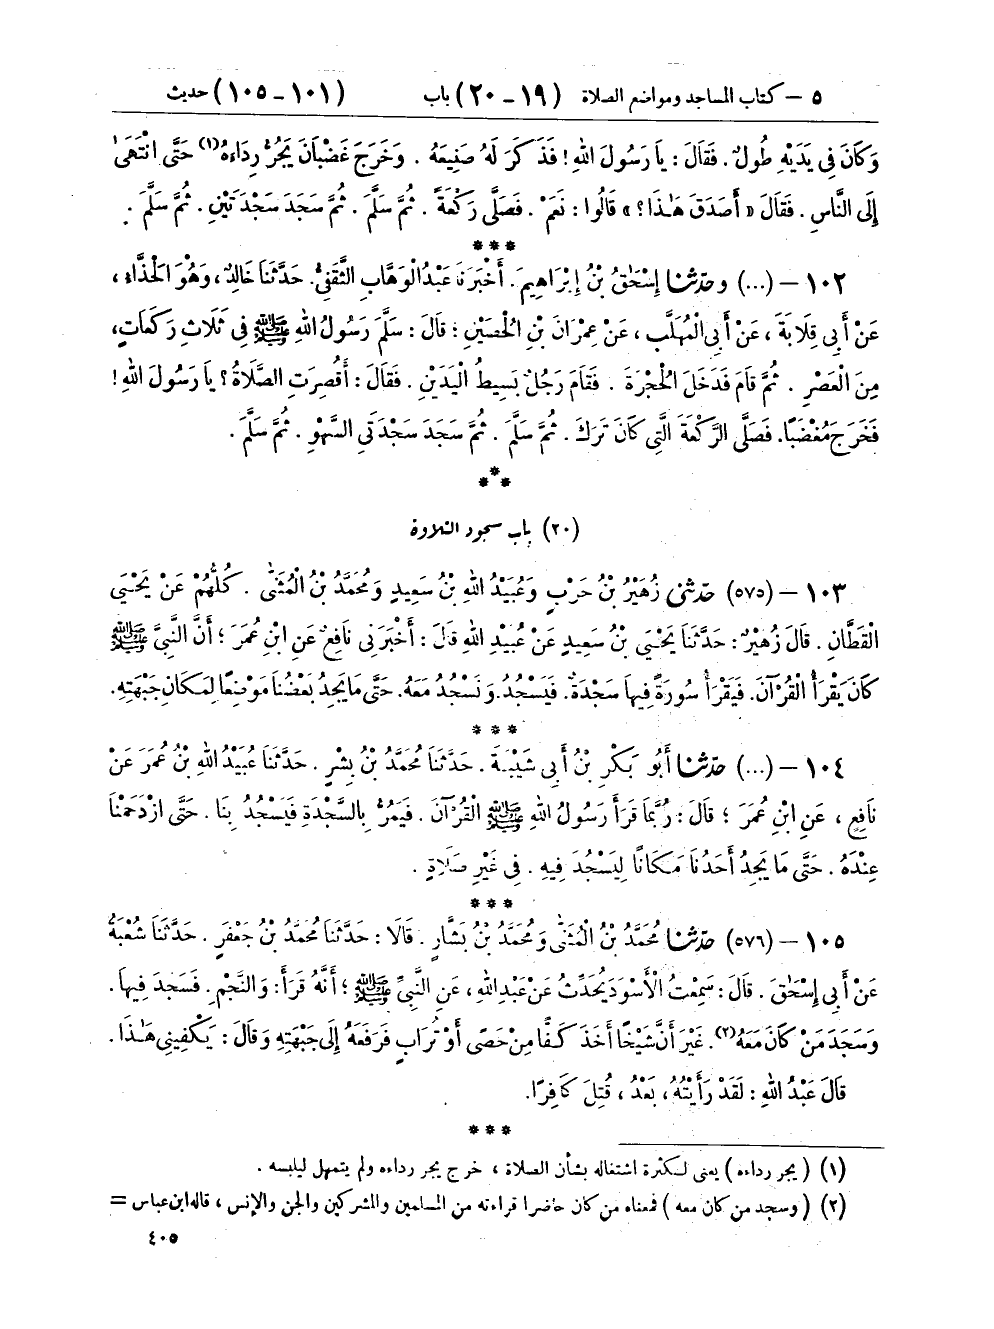 ٥ – كتاب المساجد ومواضع الصلاة (١٩ – ٢٠) باب (١٠١ – ١٠٥) حديث
وَكَانَ فِي يَدَيْهِ طُولٌ . فَقَالَ : يَا رَسُولَ اللهِ ! فَذَكَرَ لَهُ صَنِيعَهُ . وَخَرَجَ غَضْبَانَ يَجُرُّ رِدَاءَهُ(١) حَتَّى انْتَهَىٰ
إِلَى النَّاسِ . فَقَالَ « أَصَدَقَ هَٰذَا ؟ » قَالُوا : نَعَمْ . فَصَلَّى رَكْعَةً . ثُمَّ سَلَّمَ . ثُمَّ سَجَدَ سَجْدَتَيْنِ . ثُمَّ سَلَّمَ .
***
١٠٢ – (...) وحَدَّثَنَا إِسْحَٰقُ بْنُ إِبْرَاهِيمَ . أَخْبَرَنَا عَبْدُ الْوَهَّابِ الثَّقَفِيُّ . حَدَّثَنَا خَالِدٌ ، وَهُوَ الْحَذَّاءُ ،
عَنْ أَبِي قِلَابَةَ ، عَنْ أَبِي الْمُهَلَّبِ ، عَنْ عِمْرَانَ بْنِ الْحُصَيْنِ ؛ قَالَ : سَلَّمَ رَسُولُ اللهِ ﷺ فِي ثَلَاثِ رَكَعَاتٍ ،
مِنَ الْعَصْرِ . ثُمَّ قَامَ فَدَخَلَ الْحُجْرَةَ . فَقَامَ رَجُلٌ بَسِيطُ الْيَدَيْنِ . فَقَالَ : أَقُصِرَتِ الصَّلَاةُ ؟ يَا رَسُولَ اللهِ !
فَخَرَجَ مُغْضَبًا . فَصَلَّى الرَّكْعَةَ الَّتِي كَانَ تَرَكَ . ثُمَّ سَلَّمَ . ثُمَّ سَجَدَ سَجْدَتَيِ السَّهْوِ . ثُمَّ سَلَّمَ .
***
(٢٠) باب سجود التلاوة
١٠٣ – (٥٧٥) حَدَّثَنِي زُهَيْرُ بْنُ حَرْبٍ وَعُبَيْدُ اللهِ بْنُ سَعِيدٍ وَمُحَمَّدُ بْنُ الْمُثَنَّى . كُلُّهُمْ عَنْ يَحْيَىٰ
الْقَطَّانِ . قَالَ زُهَيْرٌ : حَدَّثَنَا يَحْيَىٰ بْنُ سَعِيدٍ عَنْ عُبَيْدِ اللهِ قَالَ : أَخْبَرَنِي نَافِعٌ عَنِ ابْنِ عُمَرَ ؛ أَنَّ النَّبِيَّ ﷺ
كَانَ يَقْرَأُ الْقُرْآنَ . فَيَقْرَأُ سُورَةً فِيهَا سَجْدَةٌ . فَيَسْجُدُ . وَنَسْجُدُ مَعَهُ . حَتَّى مَا يَجِدُ بَعْضُنَا مَوْضِعًا لِمَكَانِ جَبْهَتِهِ .
***
١٠٤ – (...) حَدَّثَنَا أَبُو بَكْرِ بْنُ أَبِي شَيْبَةَ . حَدَّثَنَا مُحَمَّدُ بْنُ بِشْرٍ . حَدَّثَنَا عُبَيْدُ اللهِ بْنُ عُمَرَ عَنْ
نَافِعٍ ، عَنِ ابْنِ عُمَرَ ؛ قَالَ : رُبَّمَا قَرَأَ رَسُولُ اللهِ ﷺ الْقُرْآنَ . فَيَمُرُّ بِالسَّجْدَةِ فَيَسْجُدُ بِنَا . حَتَّى ازْدَحَمْنَا
عِنْدَهُ . حَتَّى مَا يَجِدُ أَحَدُنَا مَكَانًا لِيَسْجُدَ فِيهِ . فِي غَيْرِ صَلَاةٍ .
***
١٠٥ – (٥٧٦) حَدَّثَنَا مُحَمَّدُ بْنُ الْمُثَنَّى وَمُحَمَّدُ بْنُ بَشَّارٍ . قَالَا : حَدَّثَنَا مُحَمَّدُ بْنُ جَعْفَرٍ . حَدَّثَنَا شُعْبَةُ
عَنْ أَبِي إِسْحَٰقَ . قَالَ : سَمِعْتُ الْأَسْوَدَ يُحَدِّثُ عَنْ عَبْدِ اللهِ ، عَنِ النَّبِيِّ ﷺ ؛ أَنَّهُ قَرَأَ : وَالنَّجْمِ . فَسَجَدَ فِيهَا .
وَسَجَدَ مَنْ كَانَ مَعَهُ(٢) . غَيْرَ أَنَّ شَيْخًا أَخَذَ كَفًّا مِنْ حَصًى أَوْ تُرَابٍ فَرَفَعَهُ إِلَى جَبْهَتِهِ وَقَالَ : يَكْفِينِي هَٰذَا .
قَالَ عَبْدُ اللهِ : لَقَدْ رَأَيْتُهُ ، بَعْدُ ، قُتِلَ كَافِرًا .
***
(١) ( يجر رداءه ) يعنى لكثرة اشتغاله بشأن الصلاة ، خرج يجر رداءه ولم يتمهل ليلبسه .
(٢) ( وسجد من كان معه ) فمعناه من كان حاضرا قراءته من المسلمين والمشركين والجن والإنس ، قاله ابن عباس =
٤٠٥